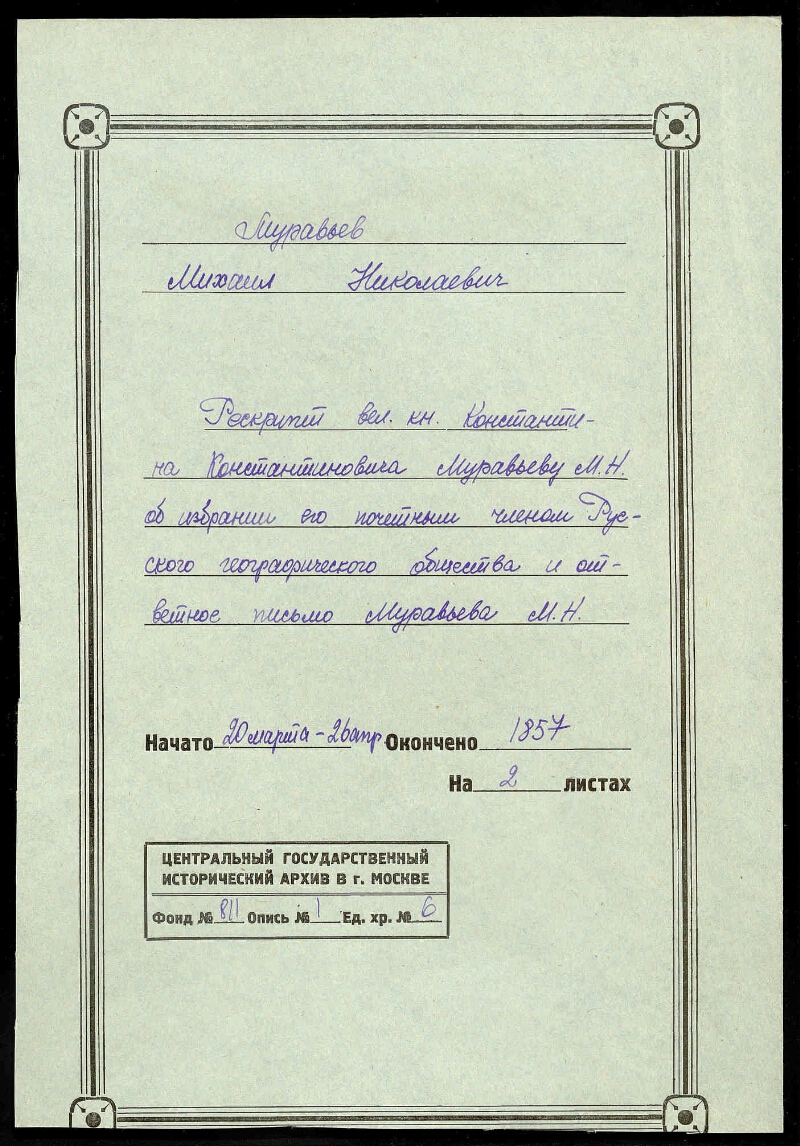 Муравьев
Михаил Николаевич
Рескрипт вел. кн. Константи-
на Константиновича Муравьеву М.Н.
об избрании его почетным членом Рус-
ского географического общества и от-
ветное письмо Муравьева М.Н.
Начато 20 марта - 26 апр Окончено 1857
На 2 листах
ЦЕНТРАЛЬНЫЙ ГОСУДАРСТВЕННЫЙ
ИСТОРИЧЕСКИЙ АРХИВ В г. МОСКВЕ
Фонд № 811 Опись № 1 Ед. хр. № 6